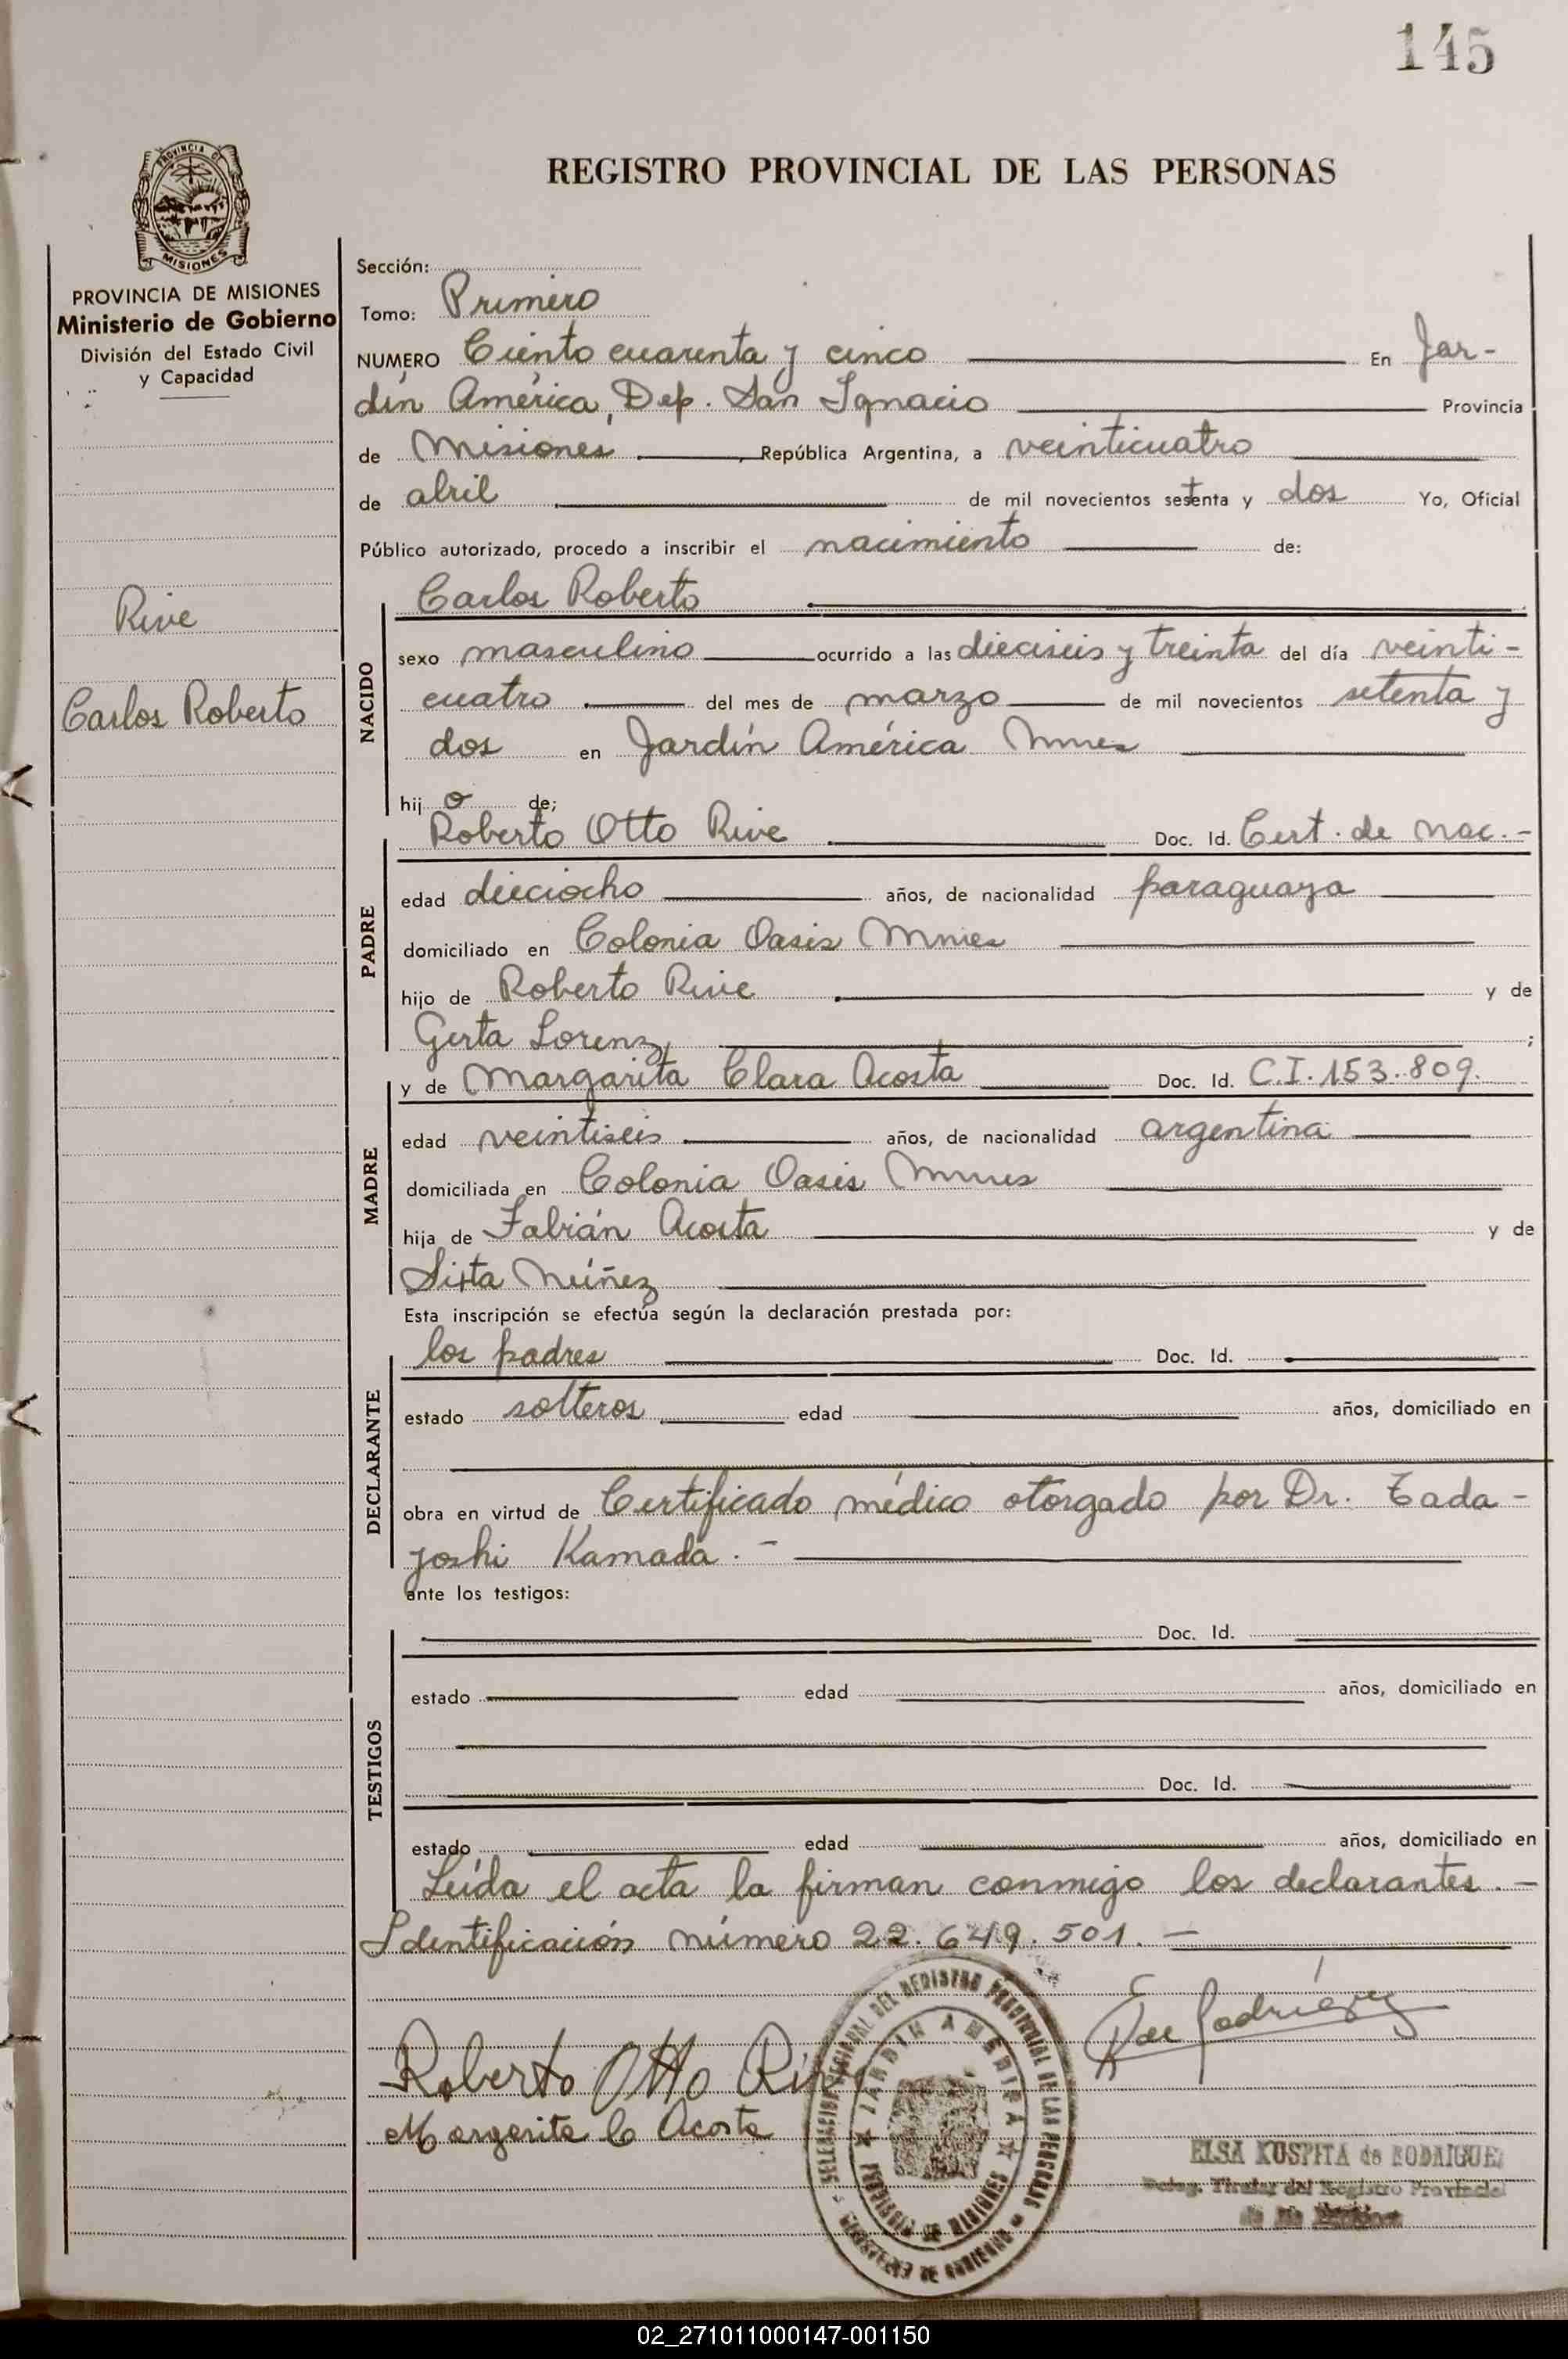 145
REGISTRO PROVINCIAL DE LAS PERSONAS
PROVINCIA DE MISIONES
Ministerio de Gobierno
División del Estado Civil
y Capacidad
Rive
Carlos Roberto
Sección:
Tomo: Primero
NUMERO Ciento cuarenta y cinco En Jar-
dín América, Dep. San Ignacio Provincia
de Misiones, República Argentina, a veinticuatro
de abril de mil novecientos setenta y dos Yo, Oficial
Público autorizado, procedo a inscribir el nacimiento de:
NACIDO
Carlos Roberto
sexo masculino ocurrido a las dieciseis y treinta del día veinti-
cuatro del mes de marzo de mil novecientos setenta y
dos en Jardín América Mnes
hijo de;
PADRE
Roberto Otto Rive Doc. Id. Cert. de nac.-
edad dieciocho años, de nacionalidad paraguaya
domiciliado en Colonia Oasis Mnes
hijo de Roberto Rive y de
Gerta Lorenz;
MADRE
y de Margarita Clara Acosta Doc. Id. C.I. 153.809.
edad veintiseis años, de nacionalidad argentina
domiciliada en Colonia Oasis Mnes
hija de Fabián Acosta y de
Sixta Núñez
Esta inscripción se efectúa según la declaración prestada por:
DECLARANTE
los padres Doc. Id.
estado solteros edad años, domiciliado en
obra en virtud de Certificado médico otorgado por Dr. Tada-
yoshi Kamada.-
ante los testigos:
TESTIGOS
Doc. Id.
estado edad años, domiciliado en
Doc. Id.
estado edad años, domiciliado en
Leída el acta la firman conmigo los declarantes.-
Identificación número 22.649.501.-
Roberto Otto Rive
Margarita C Acosta
JARDIN AMERICA
ELSA KUSPITA de RODRIGUEZ
Deleg. Titular del Registro Provincial
02_271011000147-001150